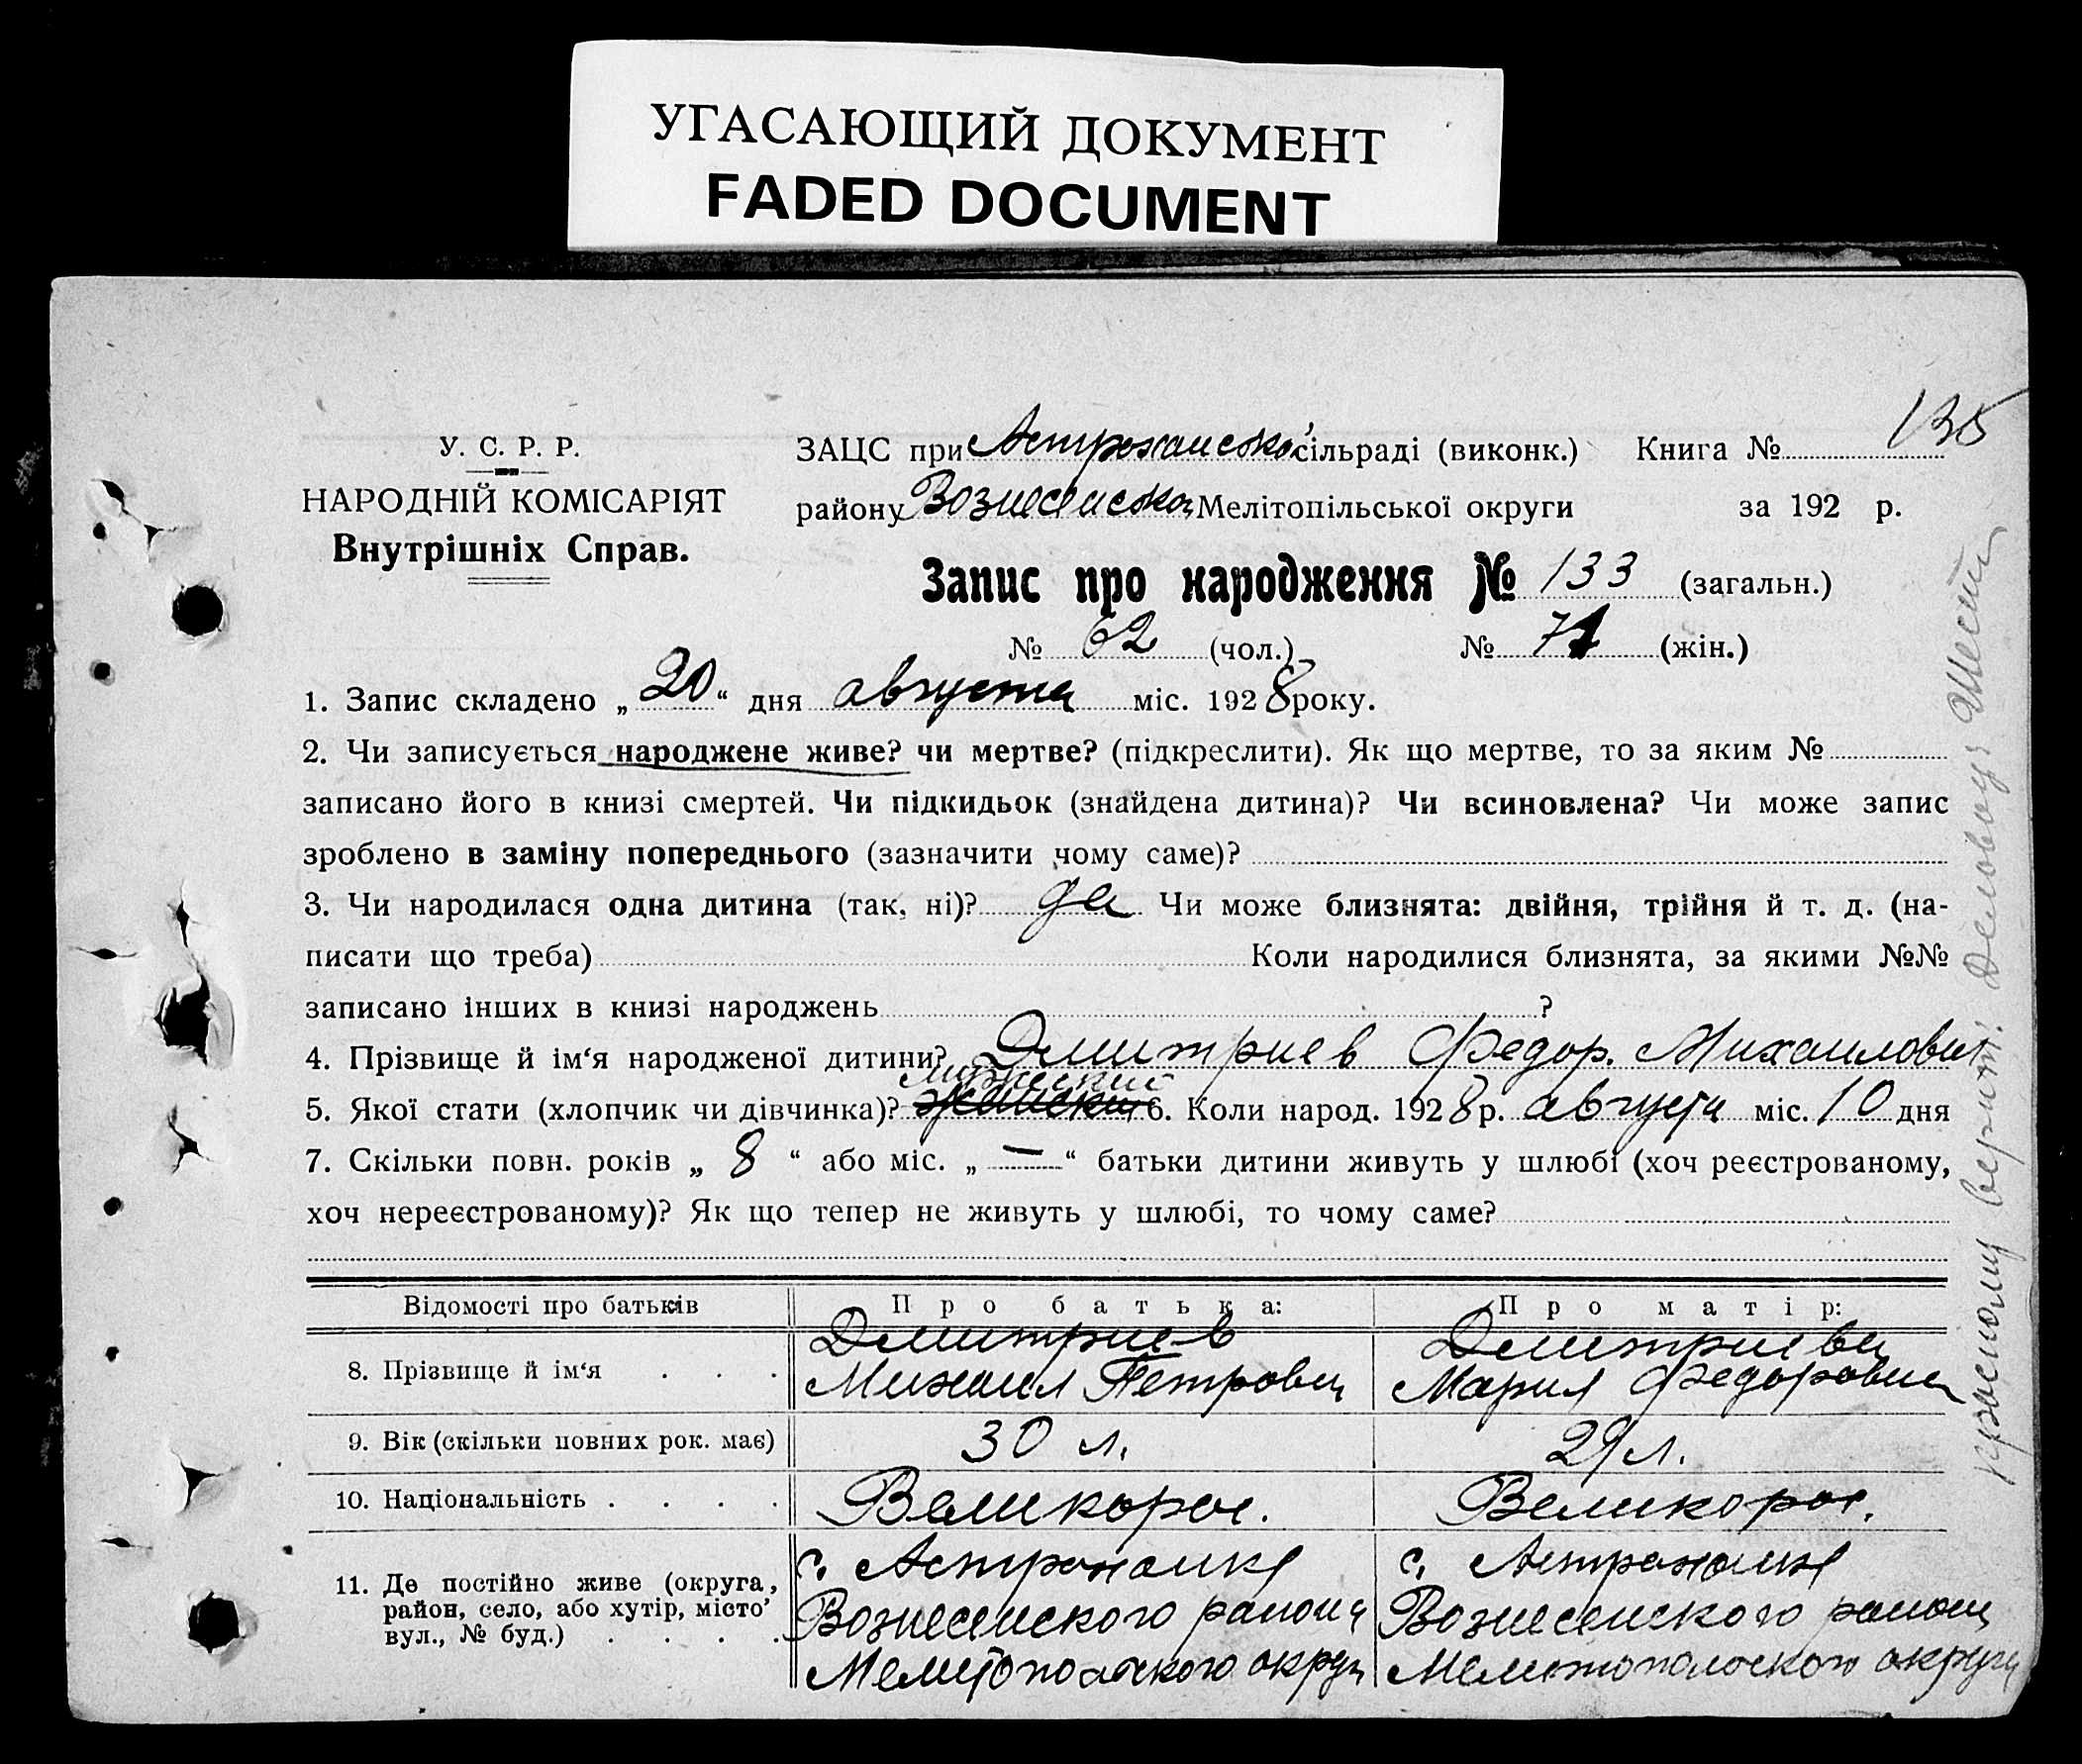 УГАСАЮЩИЙ ДОКУМЕНТ
FADED DOCUMENT
135
У. С. Р. Р.
НАРОДНІЙ КОМІСАРІЯТ
Внутрішніх Справ.
ЗАЦС при Астраханской сільраді (виконк.) Книга №
району Вознесенска Мелітопільської округи за 192 р.
Запис про народження № 133 (загальн.)
№ 62 (чол.) № 71 (жін.)
1. Запис складено „20“ дня августа міс. 1928 року.
2. Чи записується народжене живе? чи мертве? (підкреслити). Як що мертве, то за яким №
записано його в книзі смертей. Чи підкидьок (знайдена дитина)? Чи всиновлена? Чи може запис
зроблено в заміну попереднього (зазначити чому саме)?
3. Чи народилася одна дитина (так, ні)? да Чи може близнята: двійня, трійня й т. д. (на-
писати що треба) Коли народилися близнята, за якими №№
записано інших в книзі народжень ?
4. Прізвище й ім‘я народженої дитини? Дмитриев Федор. Михаилович
мужеский
5. Якої стати (хлопчик чи дівчинка)? женский 6. Коли народ. 1928 р. августа міс. 10 дня
7. Скільки повн. років „8“ або міс. „—“ батьки дитини живуть у шлюбі (хоч реєстрованому,
хоч нереєстрованому)? Як що тепер не живуть у шлюбі, то чому саме?
Відомості про батьків Про батька: Про матір:
8. Прізвище й ім‘я . . . Дмитриев Михаил Петрович Дмитриева Мария Федоровна
9. Вік (скільки повних рок. має) 30 л. 29 л.
10. Національність . . . . Великорос. Великорос.
11. Де постійно живе (округа, район, село, або хутір, місто’ вул., № буд.) . . . .
с. Астраханка с. Астраханка
Вознесенского района Вознесенского района
Мелитопольского округа Мелитопольского округа
верить: